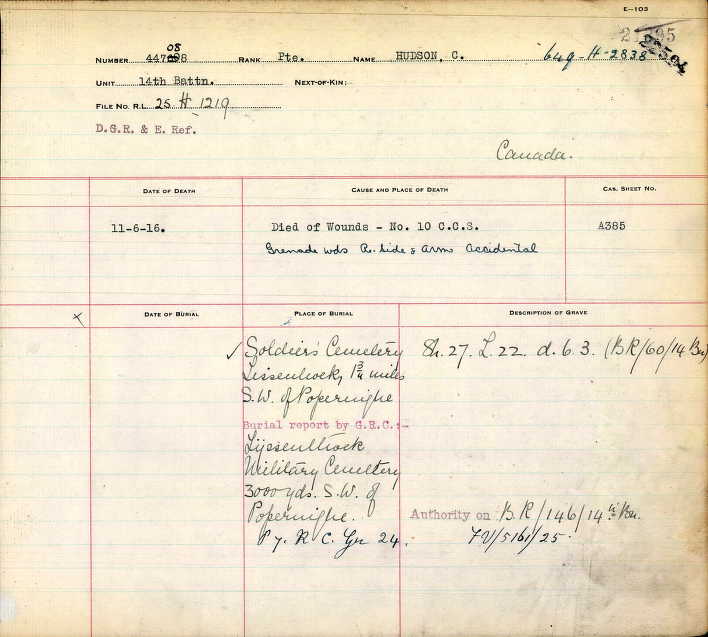 E-103
NUMBER 447 08 8 RANK Pte. NAME HUDSON, C. 649-H-2838
22504
UNIT 14th Battn. NEXT-OF-KIN:
FILE NO. R.L. 25 H 1219
D.G.R. & E. Ref.
Canada.
DATE OF DEATH CAUSE AND PLACE OF DEATH CAS. SHEET NO.
11-6-16. Died of Wounds - No. 10 C.C.S. A385
Grenade wds R. side & Arm Accidental
DATE OF BURIAL PLACE OF BURIAL DESCRIPTION OF GRAVE
x
✓ Soldiers' Cemetery Sh. 27. L. 22. d. 6. 3. (BR/60/14 Bn)
Lissenhoek, 1 3/4 miles
S.W. of Poperinghe
Burial report by G.R.C.:-
Lijssenthoek
Military Cemetery
3000 yds. S.W. of
Poperinghe. Authority on B.R/146/14th Bn.
P 7. R C. Gr 24. FV/5161/25.